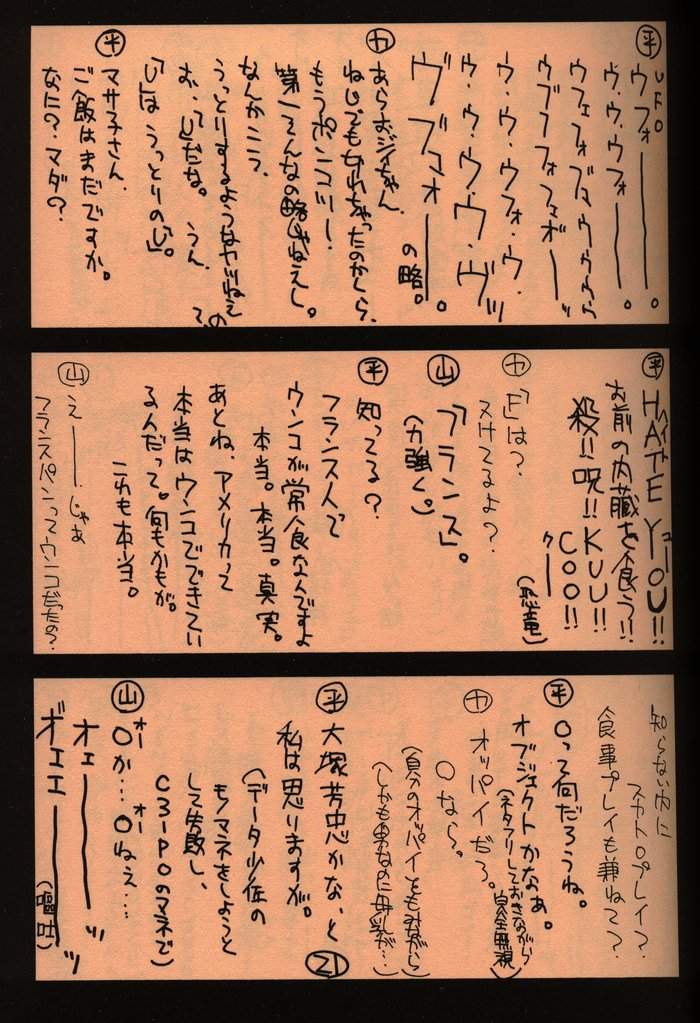 平
UFO
ウフォーーー。
ウ・ウ・ウフォーー。
ウフェフォブマウウウウ
ウブフフォフェボーーッ
ウ・ウ・ウフォ・ウ・
ウ・ウ・ウ・ウ・ヴッ
ヴブフォーー。
の略。
カ
あらおジイちゃん
ねじでも切れちゃったのかしら、
もうポンコツー！
第一そんなの略じゃねえし。
なんかこう、
うっとりするようなヤツねえの
お、「U」だな。うん。て、
「U」は うっとりの「U」。
平
マサ子さん、
ご飯はまだですか。
なに？・マダ？
平
HATE YOU!!
ヘイト ユー
お前の内蔵を食う!!
殺!!呪!!KUU!!
COO!!
クー
(恐竜)
カ
「F」は？
ヌけてるよ？
山
「フランス」。
(力強く。)
平
知ってる？
フランス人て
ウンコが常食なんですよ
本当。本当。真実。
あとね、アメリカって
本当はウンコでできてい
るんだって。何もかもが。
これも本当。
山
えーー。じゃあ
フランスパンってウンコだったの？
知らない内に
スカトロプレイ？
食事プレイも兼ねて？
平
Oって何だろうね。
オブジェクトかなぁ。
(ネタフリしておきながら
完全無視)
カ
オッパイだろ。
Oなら。
(自分のオッパイをもみながら)
平
大塚芳忠かな、と
私は思いますが。
(データ少佐の
モノマネをしようと
して失敗し、
C3-POのマネで)
山
Oか…Oねぇ…
オー オー
オェーーーッ
ギェエエーーーッ
(嘔吐)
21